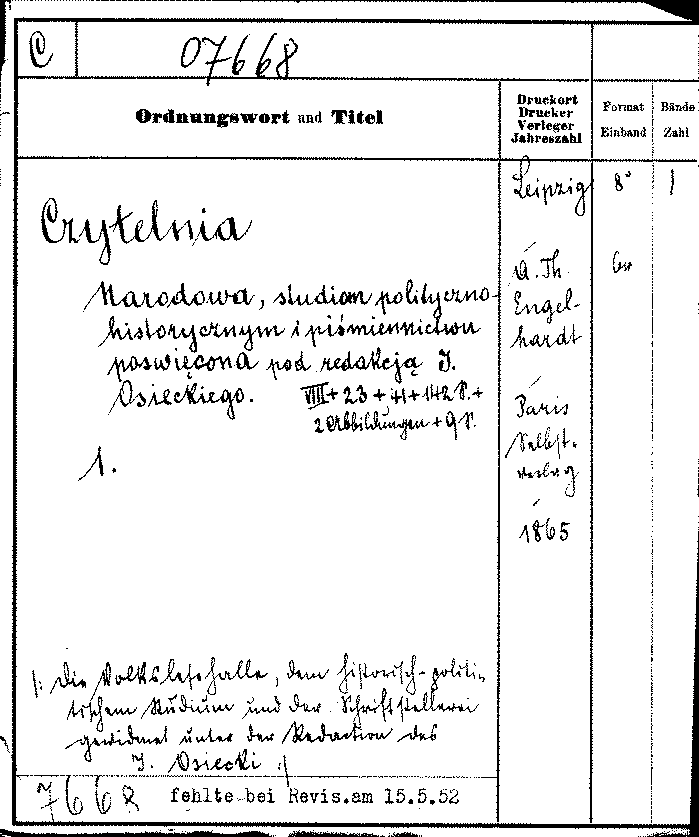 C 07668
Ordnungswort und Titel
Druckort
Drucker
Verleger
Jahreszahl
Format
Einband
Bände
Zahl
Leipzig 8° 1
Czytelnia
Narodowa, studiom polityczno-
historycznym i piśmiennictwu
poswięcona pod redakcją J.
Osieckiego. VIII + 23 + 41 + 142 S. +
2 Abbildungen + 9 S.
1.
A. Th.
Engel-
hardt
Paris
Selbst-
verlag
1865
/: Die Volkslesehalle, dem historisch-politi-
tischem Studium und der Schriftstellerei
gewidmet unter der Redaction des
J. Osiecki :/
7668 fehlte bei Revis.am 15.5.52